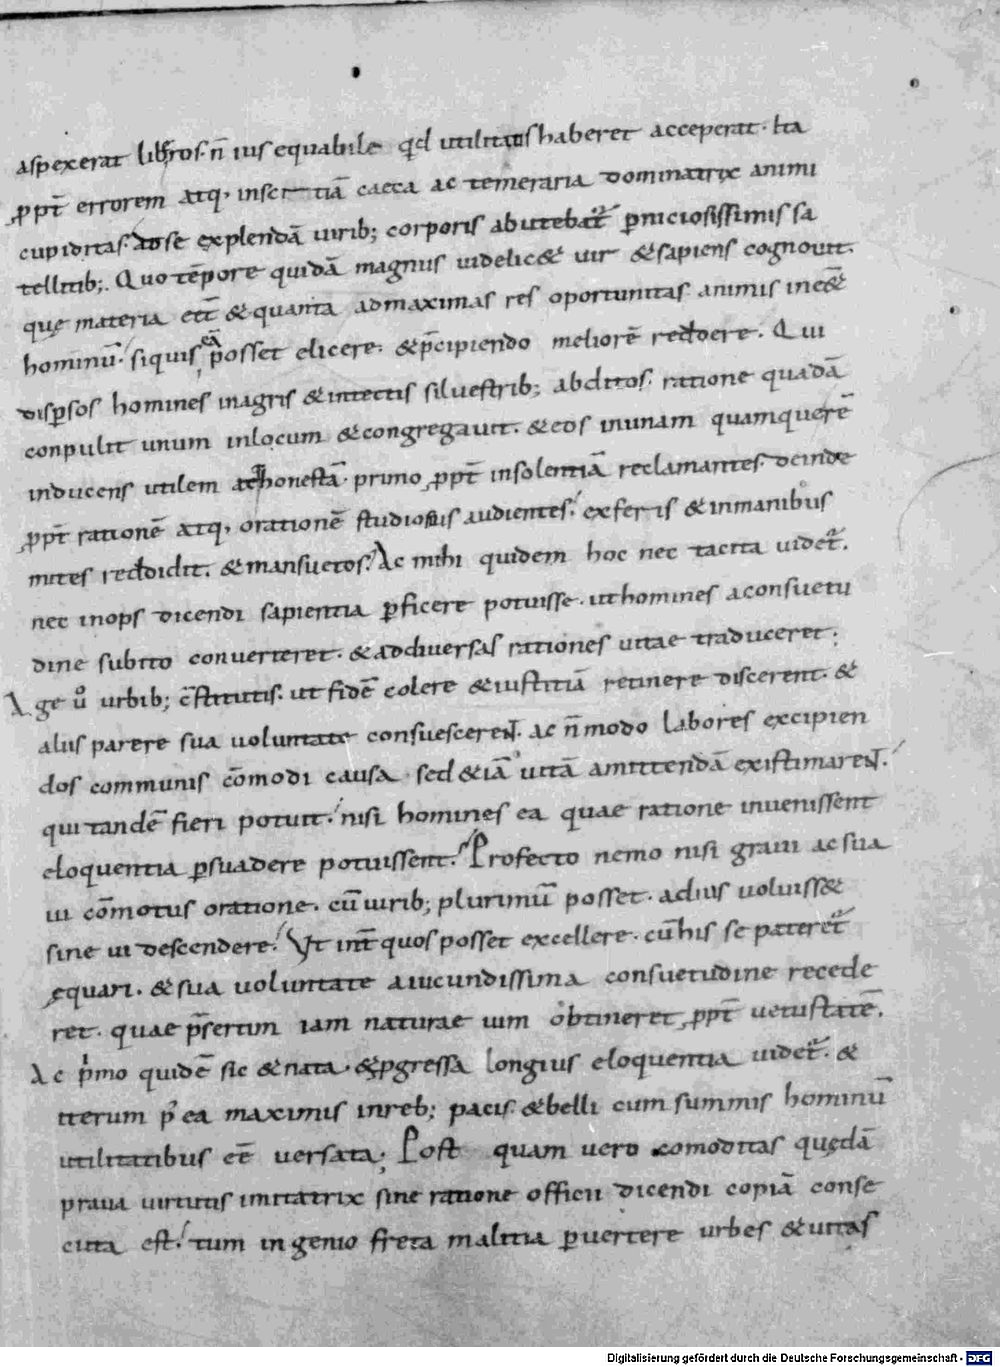 aspexerat libros. n̄ ius equabile qd utilitatis haberet acceperat. Ita
ꝓpt̄ errorem atq, inscitiā caeca ac temeraria dominatrix animi
cupiditas. adse explendā uirib; corporis abutebat᷑ ꝑniciosissimis sa
tellitib;. Quo tēpore quidā magnus uidelic& uir &sapiens cognouit.
quę materia eēt &quanta admaximas res oportunitas animis ineēt
hominū. siquis eā posset elicere. &p̄cipiendo meliorē reddere. Qui
disꝑsos homines inagris &intectis siluestrib; abditos. ratione quadā
conpulit unum inlocum &congregauit. &eos inunam quamque rē
inducens utilem atq honestā. primo ꝓpt̄ insolentiā reclamantes. deinde
ꝓpt̄ rationē atq, orationē studiosius audientes. exferis &inmanibus
mites reddidit. &mansuetos. Ac mihi quidem hoc nec tacita uidet᷑.
nec inops dicendi sapientia ꝑficere potuisse. ut homines aconsuetu
dine subito conuerteret. &addiuersas rationes uitae traduceret.
Age ůo urbib; c̄stitutis. ut fidē colere &iustitiā retinere discerent. &
aliis parere sua uoluntate consuescerent. ac n̄ modo labores excipien
dos communis cōmodi causa. sed &iā uitā amittendā existimarent.
qui tandē fieri potuit. nisi homines ea quae ratione inuenissent
eloquentia ꝑsuadere potuissent. Profecto nemo nisi graui ac sua
ui cōmotus oratione. cū uirib; plurimū posset. adius uoluiss&
sine ui descendere. Vt int̄ quos posset excellere. cū his se pateret᷑
ęquari. &sua uoluntate aiucundissima consuetudine recede
ret. quae p̄sertim iam naturae uim obtineret ꝓpt̄ uetustatē.
Ac pͥmo quidē sic &nata. &ꝓgressa longius eloquentia uidet᷑. &
iterum p᷒ ea maximis inreb; pacis. &belli cum summis hominū
utilitatibus eē uersata; Post quam uero comoditas quędā
praua uirtutis imitatrix sine ratione officii dicendi copiā conse
cuta est. tum ingenio freta malitia ꝑuertere urbes &uitas
Digitalisierung gefördert durch die Deutsche Forschungsgemeinschaft - DFG